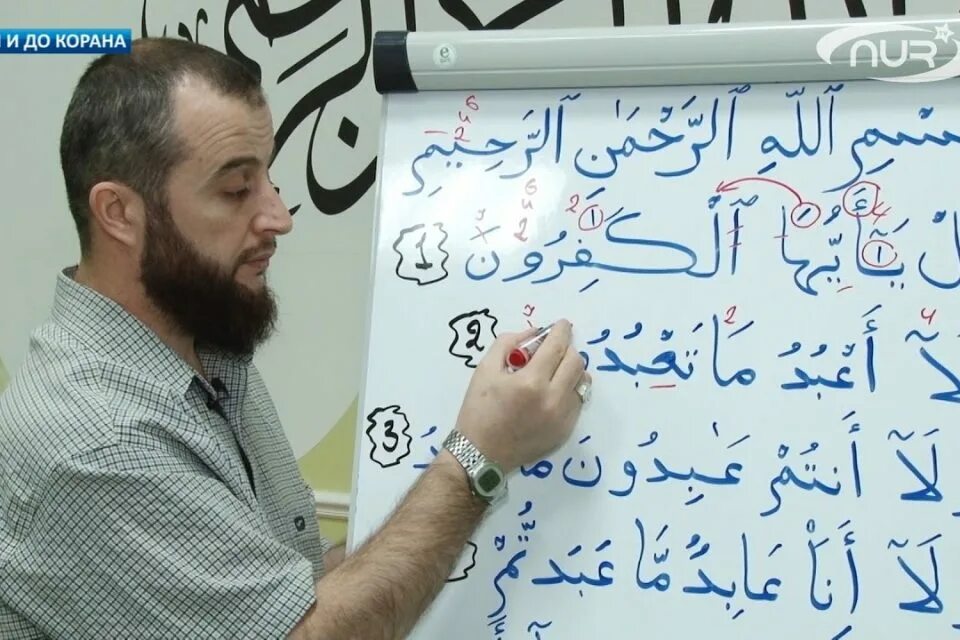 И ДО КОРАНА
NUR
سْمِ ٱللَّهِ ٱلرَّحْمَٰنِ ٱلرَّحِيمِ
لْ يَٰٓأَيُّهَا ٱلْكَٰفِرُونَ 1
لَآ أَعْبُدُ مَا تَعْبُدُ 2
لَآ أَنتُمْ عَٰبِدُونَ 3
لَآ أَنَا۠ عَابِدٌ مَّا عَبَدتُّمْ